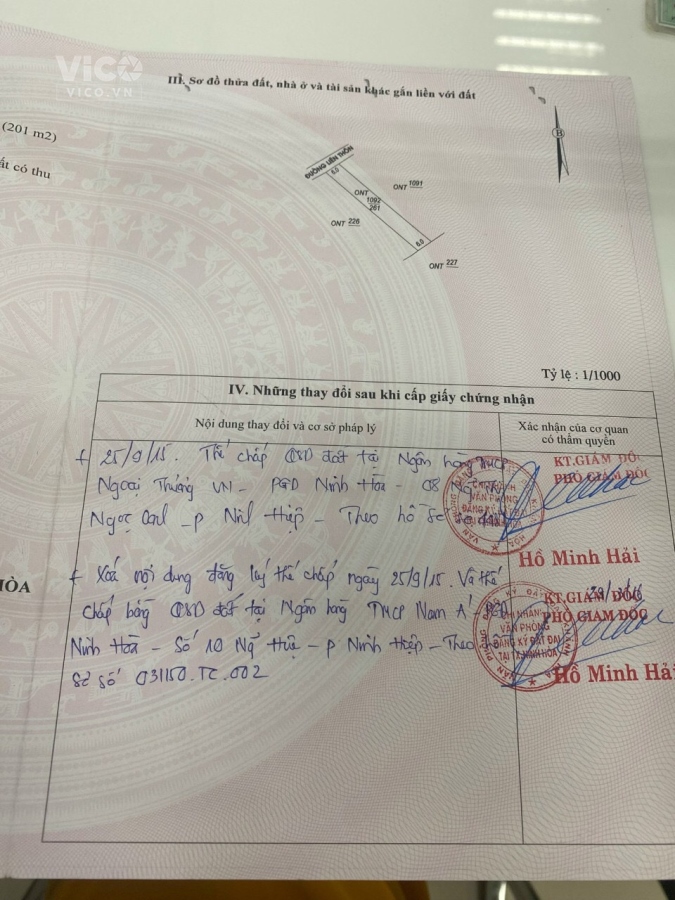 VICO
VICO.VN
III. Sơ đồ thửa đất, nhà ở và tài sản khác gắn liền với đất
(201 m2)
ất có thu
B
ĐƯỜNG LIÊN THÔN
6.0
ONT 1091
ONT 1092
261
ONT 226
6.0
ONT 227
Tỷ lệ : 1/1000
IV. Những thay đổi sau khi cấp giấy chứng nhận
Nội dung thay đổi và cơ sở pháp lý
Xác nhận của cơ quan
có thẩm quyền
+ 25/9/15. Thế chấp QSD đất tại Ngân hàng TMCP
Ngoại Thương VN - PGD Ninh Hòa - 08
Ngọc - P Ninh Hiệp - Theo hồ sơ
KT.GIÁM ĐỐC
PHÓ GIÁM ĐỐC
Hồ Minh Hải
HÒA
+ Xoá nội dung đăng ký thế chấp ngày 25/9/15. Và thế
chấp bằng QSD đất tại Ngân hàng TMCP Nam Á PGD
Ninh Hoà - Số 10 - P Ninh Hiệp - Theo
Số 031150.TC.002
KT.GIÁM ĐỐC
PHÓ GIÁM ĐỐC
CHI NHÁNH
VĂN PHÒNG
ĐĂNG KÝ ĐẤT ĐAI
TẠI TX.NINH HÒA
Hồ Minh Hải